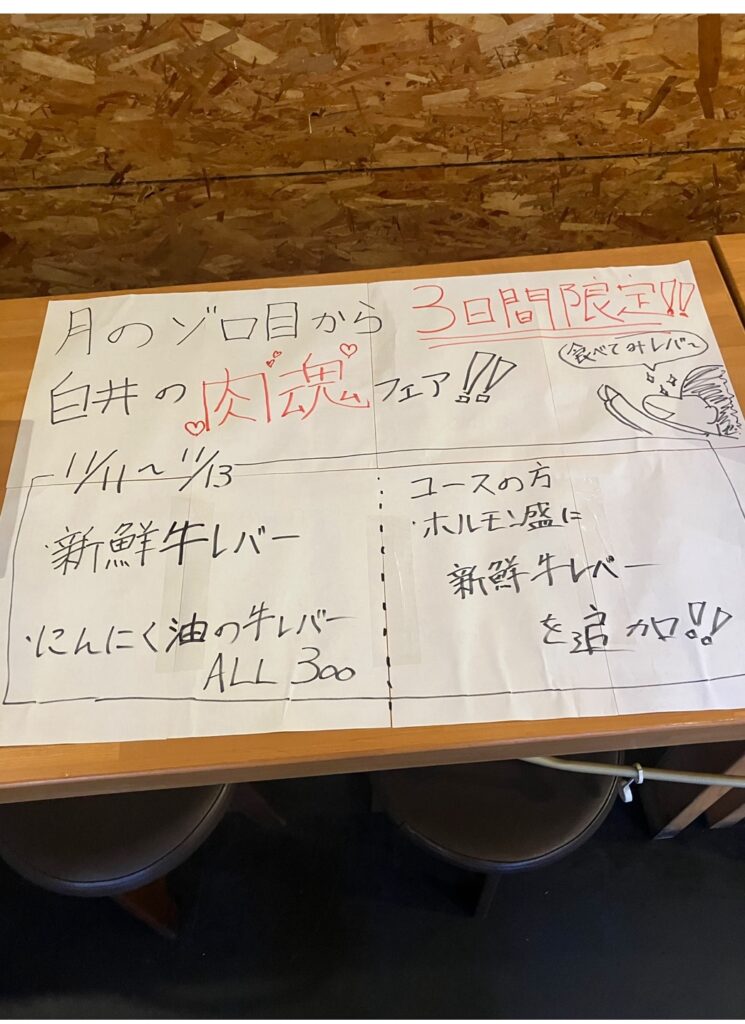 月のゾロ目から 3日間限定!!
白井の肉魂フェア!!
食べてみレバ〜
11/11〜11/13
・新鮮牛レバー
・にんにく油の牛レバー
ALL 300
コースの方
・ホルモン盛に
新鮮牛レバー
を追加!!